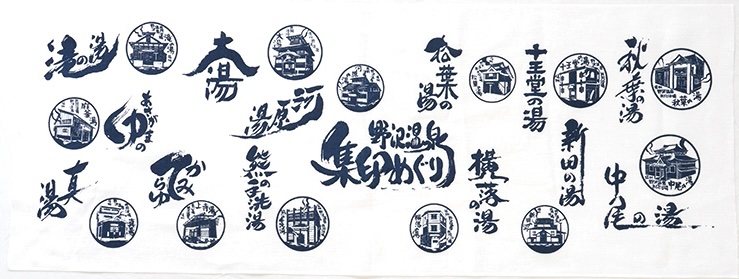 滝の湯
大湯
河原湯
あさがまのゆ
真湯
かみてらゆ
熊の手洗湯
野沢温泉
集印めぐり
松葉の湯
十王堂の湯
秋葉の湯
秋葉の湯
横落の湯
新田の湯
中尾の湯
中尾の湯